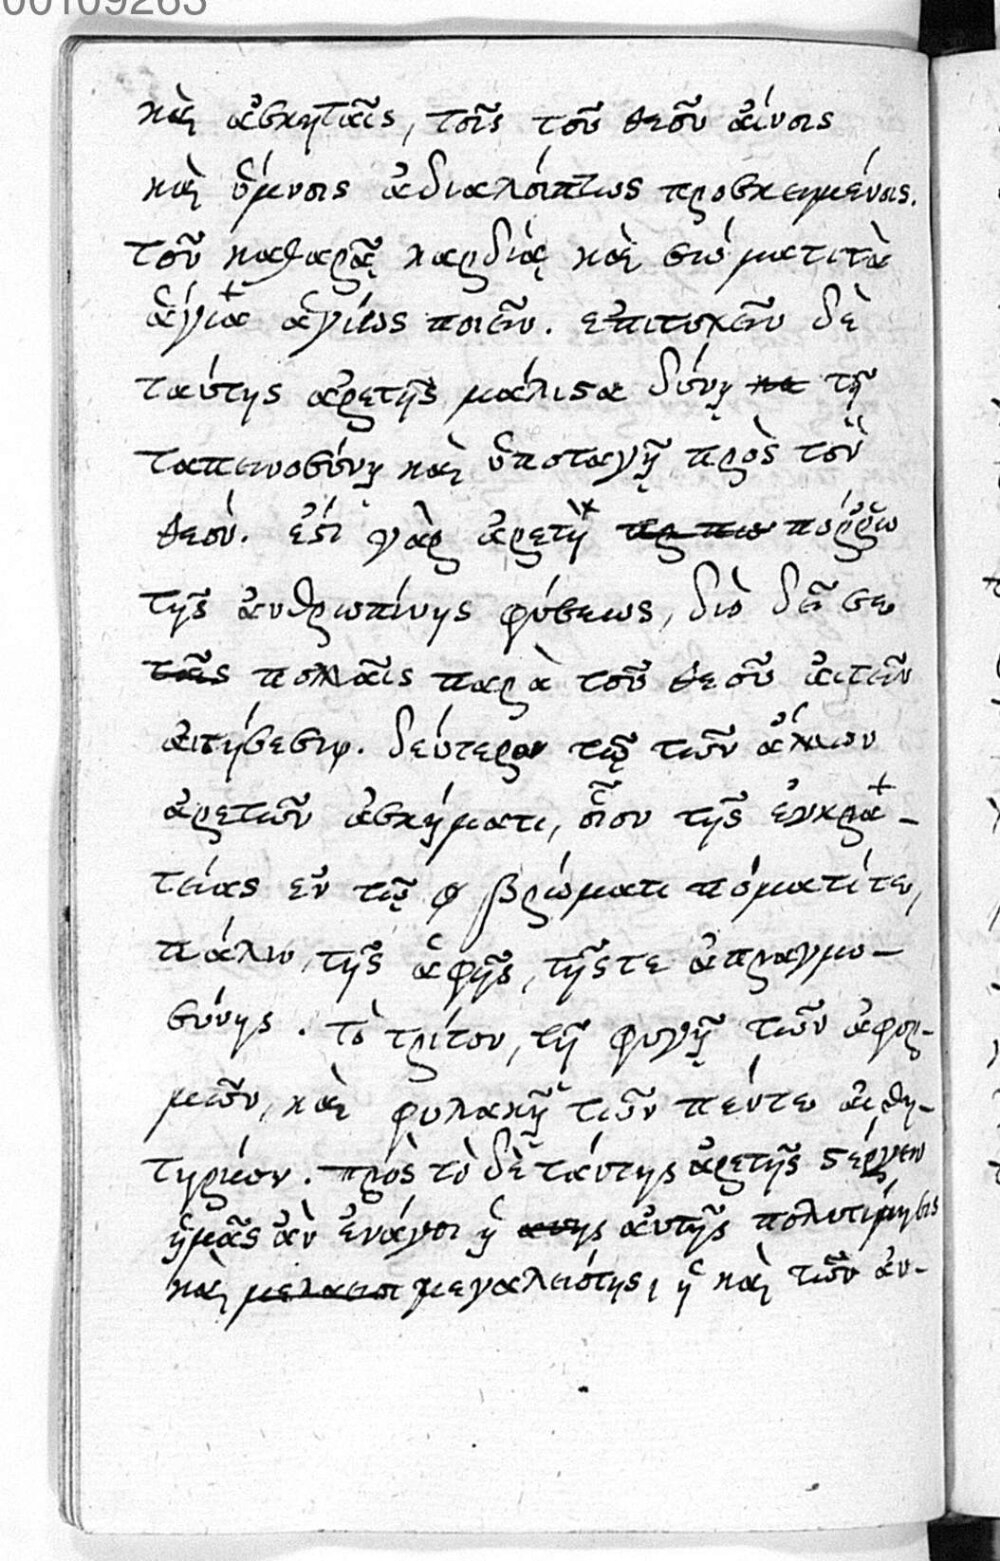 00109263
καὶ ἀσκηταῖς, τοῖς τοῦ θεοῦ ἀίνοις
καὶ ὕμνοις ἀδιαλείπτως προσκειμένοις.
τοῦ καθαρᾷ καρδίᾳ καὶ σώματι τὰ
ἅγια ἁγίως ποιεῖν. ἐπιτυχεῖν δὲ
ταύτης ἀρετῆς μάλιστα δύνῃ τῇ
ταπεινοσύνῃ καὶ ὑποταγῇ πρὸς τὸν
θεόν. ἐστὶ γὰρ ἀρετὴ πόῤῥω
τῆς ἀνθρωπίνης φύσεως, διὸ δεῖ σε
ταῖς πολλαῖς παρὰ τοῦ θεοῦ ἀιτεῖν
ἀιτήσεσιν. δεύτερον τῷ τῶν ἄλλων
ἀρετῶν ἀσκήματι, οἷον τῆς ἐγκρα-
τείας ἐν τῷ βρώματι πόματί τε,
πάλιν, τῆς ἁφῆς, τῆς τε ἀπραγμο-
σύνης. τὸ τρίτον, τῇ φυγῇ τῶν ἀφορ-
μῶν, καὶ φυλακῇ τῶν πέντε ἀισθη-
τηρίων. πρὸς τὸ δὲ ταύτης ἀρετῆς στέργειν
ἡμᾶς ἂν ἐνάγοι ἡ αὐτῆς πολυτίμησις
καὶ μεγαλειότης, ἡ καὶ τῶν ἀν-